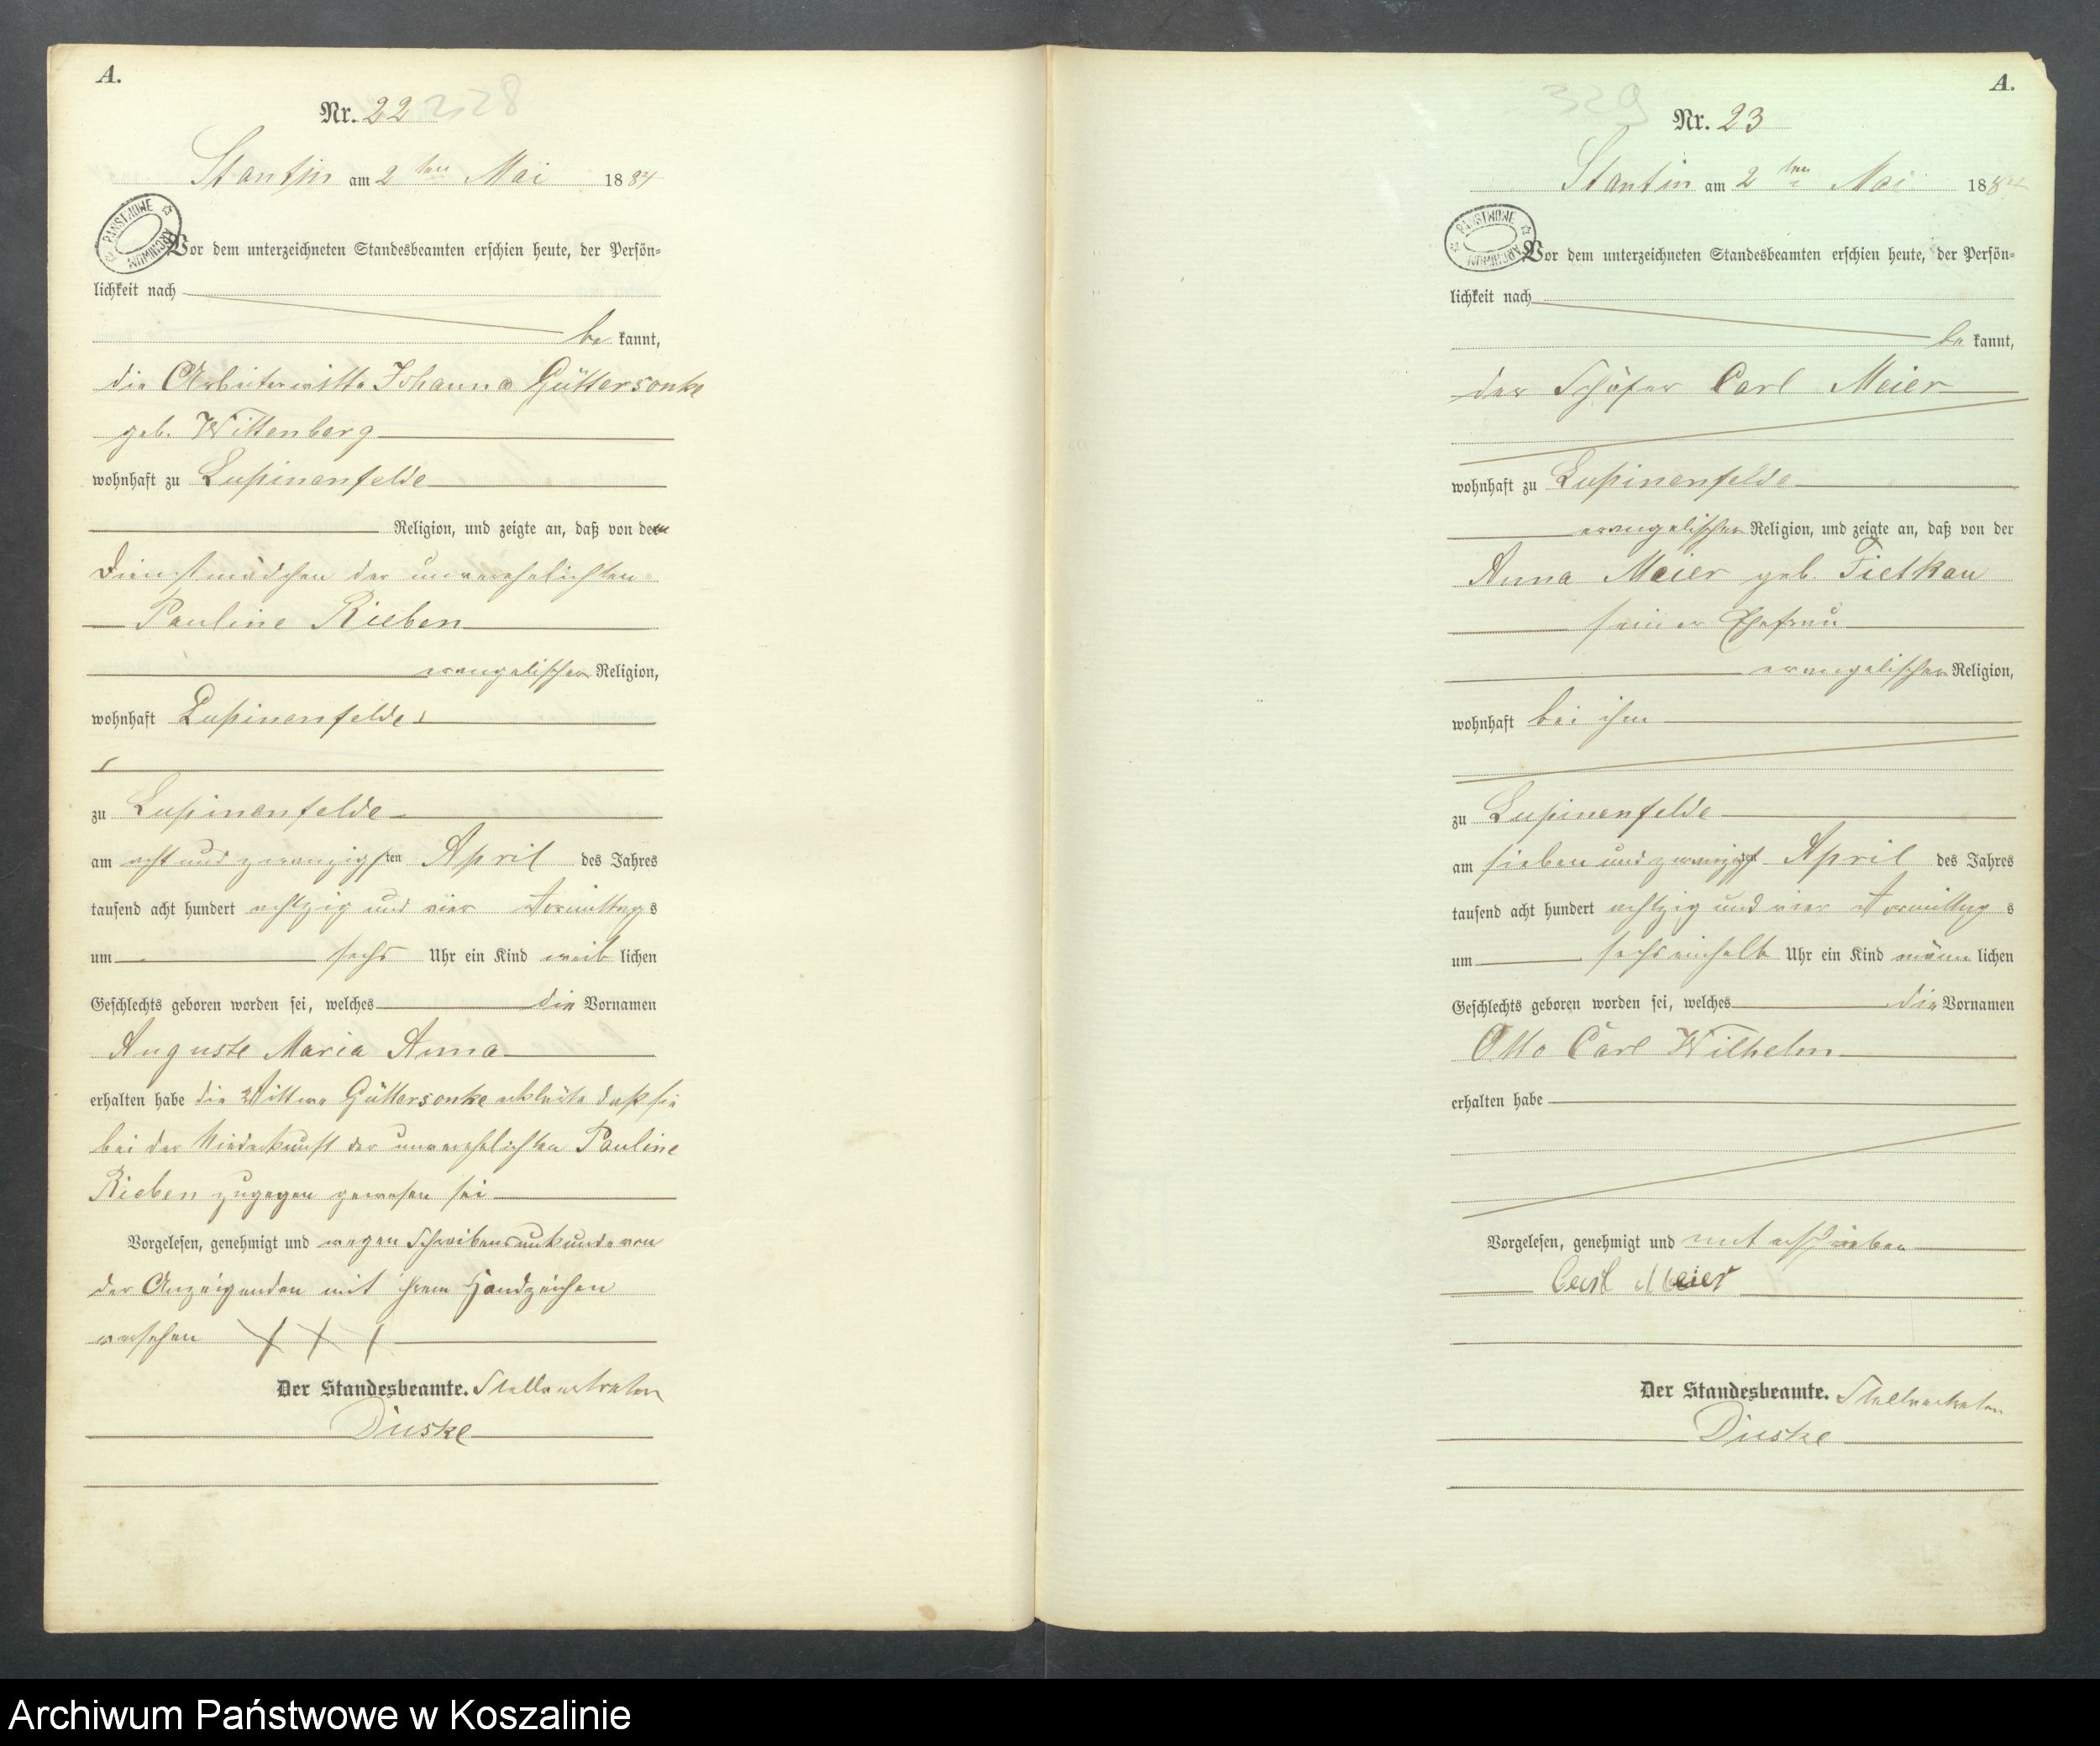 A.
Nr. 22
Stantin am 2ten Mai 1884
PAŃSTWOWE ARCHIWUM
Vor dem unterzeichneten Standesbeamten erschien heute, der Persön-
lichkeit nach
be kannt,
die Arbeiterwittwe Johanna Güttersonke
geb. Wittenberg
wohnhaft zu Lupinenfelde
Religion, und zeigte an, daß von dem
Dienstmädchen der unverehelichten
Pauline Rieben
evangelischer Religion,
wohnhaft Lupinenfelde
zu Lupinenfelde
am acht und zwanzigsten April des Jahres
tausend acht hundert achtzig und vier Vormittags
um sechs Uhr ein Kind weib lichen
Geschlechts geboren worden sei, welches die Vornamen
Auguste Maria Anna
erhalten habe die Wittwe Güttersonke erklärte daß sie
bei der Niederkunft der unverehelichten Pauline
Rieben zugegen gewesen sei
Vorgelesen, genehmigt und wegen Schreibensunkunde von
der Anzeigenden mit ihrem Handzeichen
versehen X X X
Der Standesbeamte. Stellvertreter
Duske
A.
329
Nr. 23
Stantin am 2ten Mai 1884
PAŃSTWOWE ARCHIWUM
Vor dem unterzeichneten Standesbeamten erschien heute, der Persön-
lichkeit nach
be kannt,
der Schäfer Carl Meier
wohnhaft zu Lupinenfelde
evangelischer Religion, und zeigte an, daß von der
Anna Meier geb. Tietkau
seiner Ehefrau
evangelischer Religion,
wohnhaft bei ihm
zu Lupinenfelde
am sieben und zwanzigsten April des Jahres
tausend acht hundert achtzig und vier Vormittag s
um sechseinhalb Uhr ein Kind männ lichen
Geschlechts geboren worden sei, welches die Vornamen
Otto Carl Wilhelm
erhalten habe
Vorgelesen, genehmigt und unterschrieben
Carl Meier
Der Standesbeamte. Stellvertreter
Duske
Archiwum Państwowe w Koszalinie